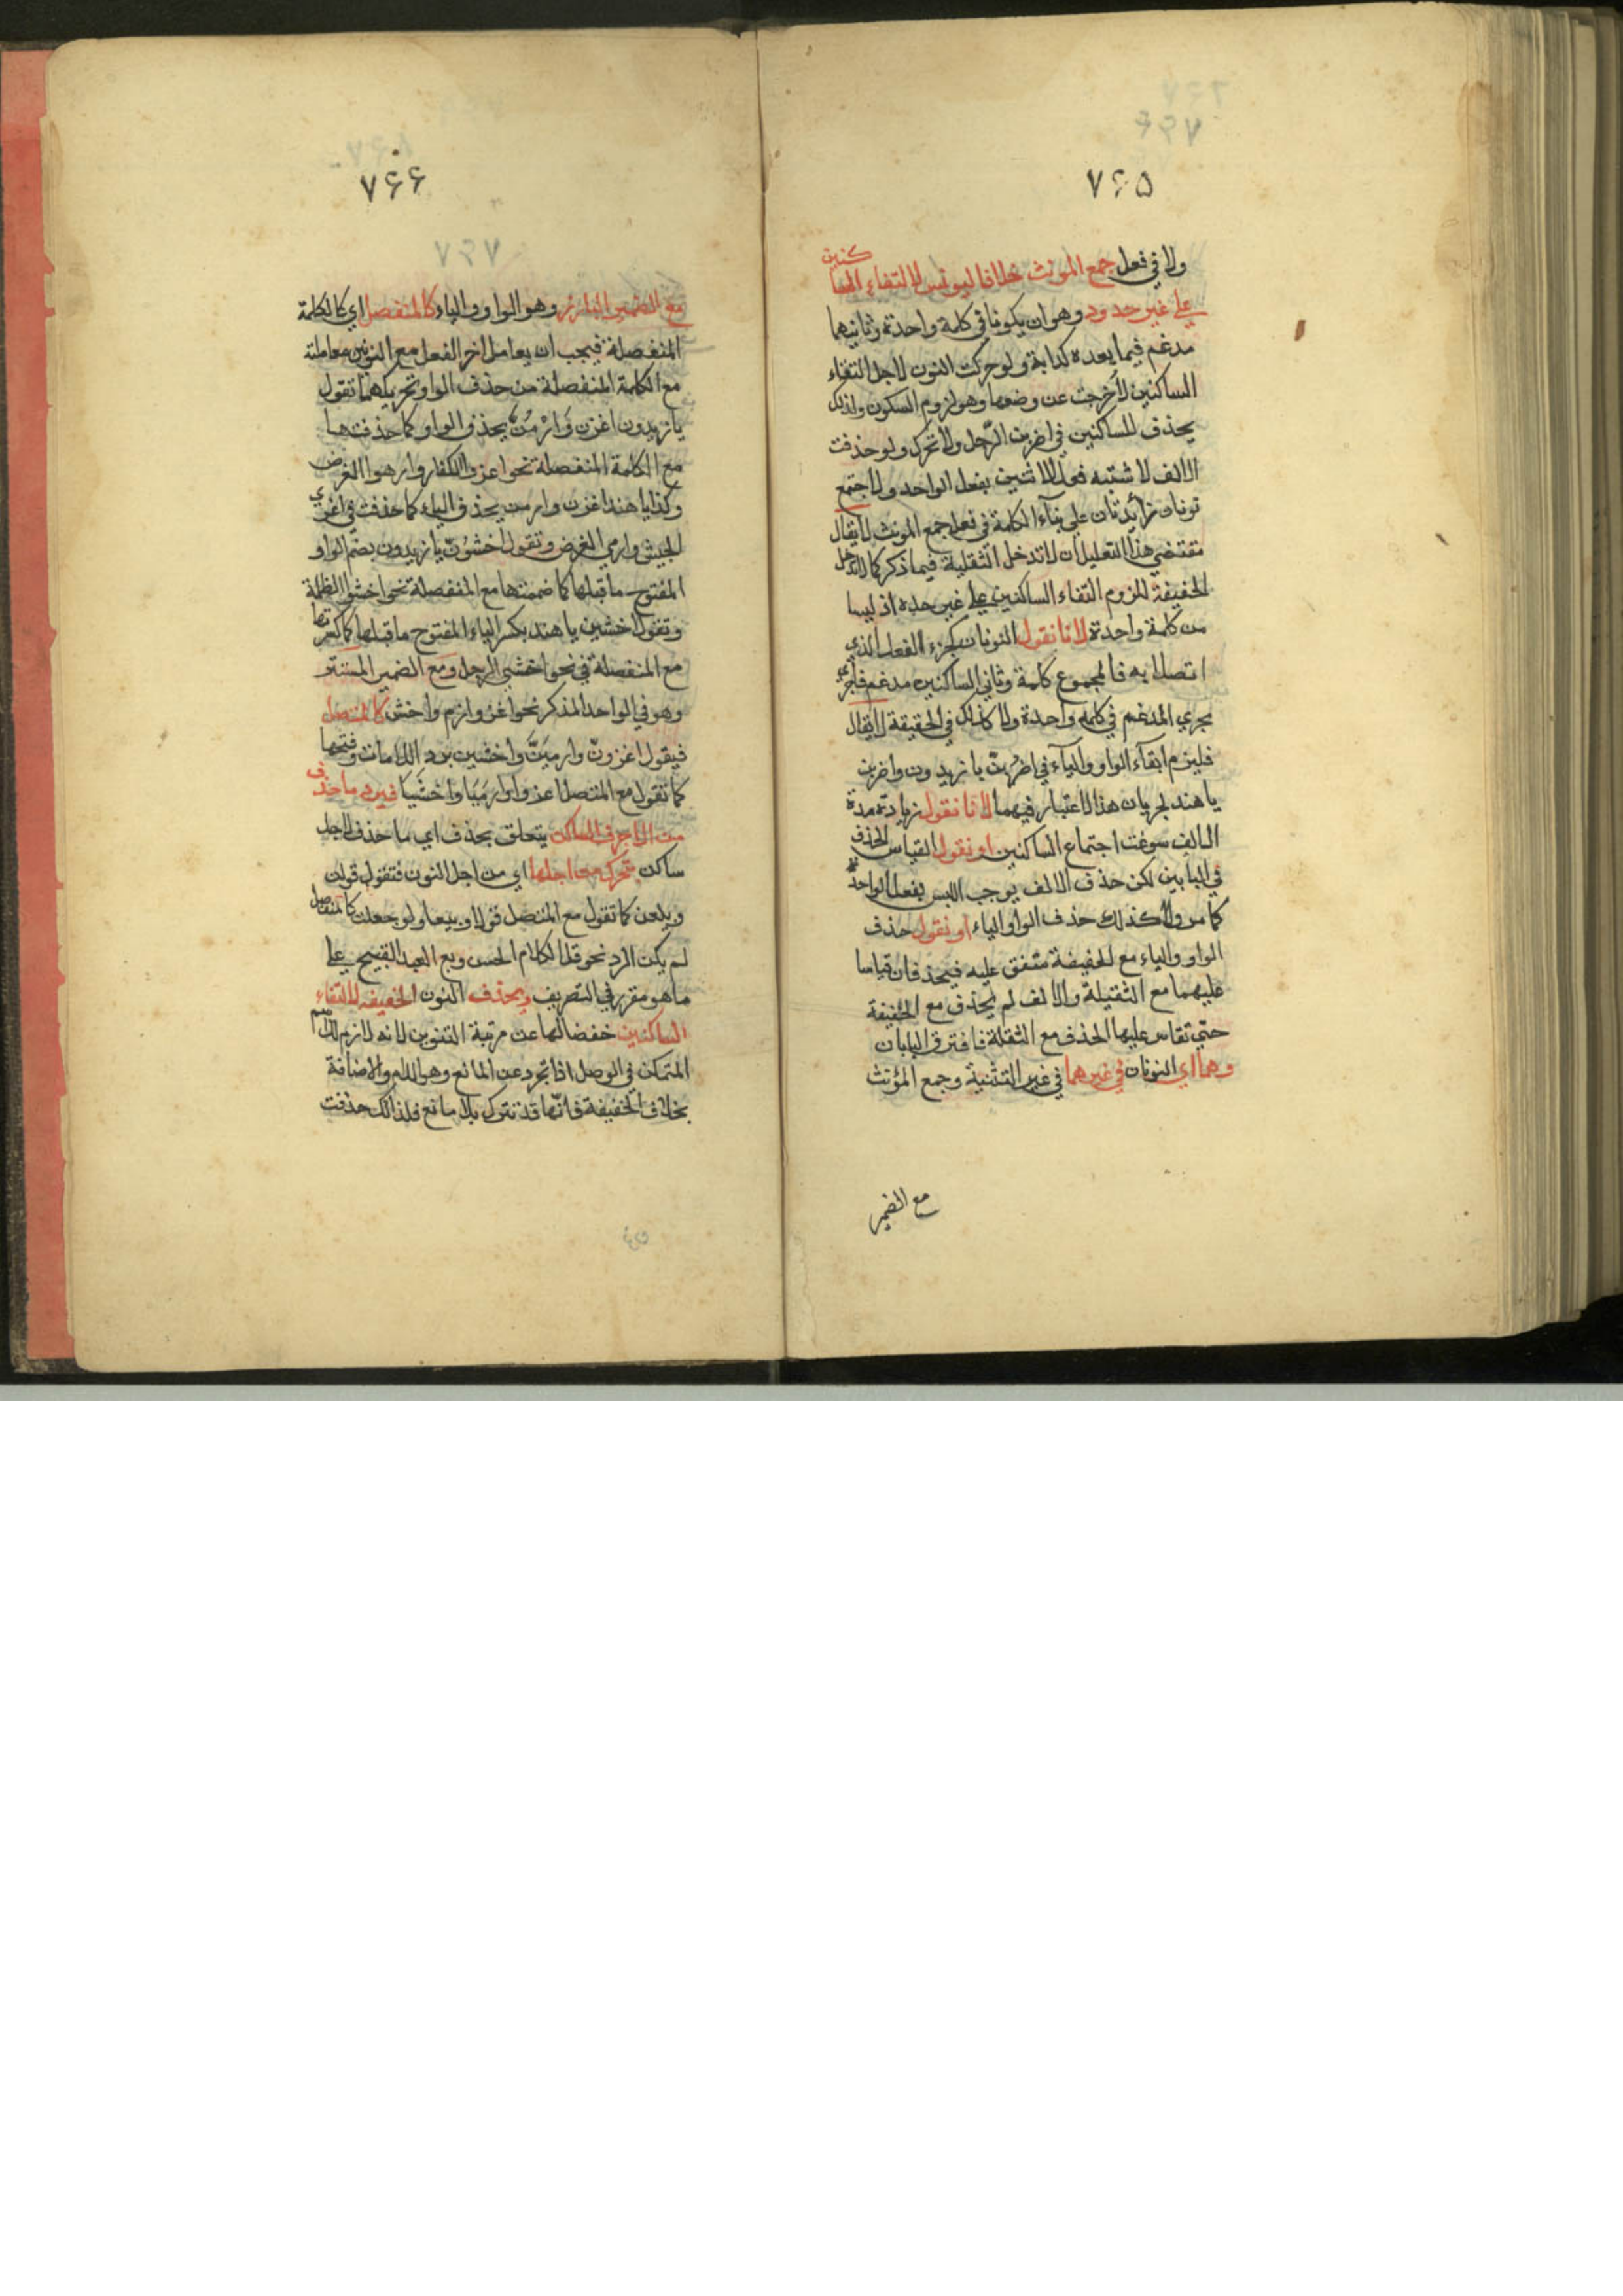 ٧۶۵
ولا في فعل جمع المونث خلافا ليونس لالتقاء الساكنين
علي غير حدود وهو ان يكونا في كلمة واحدة وثانيهما
مدغم فيما بعده كدابة ولو حركت النون لاجل التقاء
الساكنين لأخرجت عن وضعها وهو لزوم السكون ولذلك
يحذف للساكنين في اضربن الرّجل ولا تحرك ولو حذفت
الالف لاشتبه فعل الاثنين بفعل الواحد ولاجتمع
نونان زائدتان علي بناء الكلمة في فعل جمع المونث لا يقال
مقتضي هذا التعليل ان لا تدخل الثقلية فيما ذكر كما لا تدخل
الخفيفة للزوم التقاء الساكنين علي غير حده اذ ليسا
من كلمة واحدة لانا نقول النونان كجزء الفعل الذي
اتصلا به فالمجموع كلمة وثاني الساكنين مدغم فاجري
مجري المدغم في كلمه واحدة ولا كذلك في الحقيقة لا يقال
فليزم ابقآء الواو والياء في اضربنّ يا زيدون واضربن
يا هند لجريان هذا الاعتبار فيهما لانا نقول زيادة مدة
الالف سوغت اجتماع الساكنين او نقول القياس الحذف
في البابين لكن حذف الالف يوجب اللبس بفعل الواحد
كما مر ولا كذلك حذف الواو والياء او نقول حذف
الواو والياء مع الخفيفة متفق عليه فيحذفان قياسا
عليهما مع الثقيلة والالف لم يحذف مع الخفيفة
حتي تقاس عليها الحذف مع الثقلة فافترق البابان
وهما اي النونان في غيرهما في غير التثنية وجمع المؤنث
مع الضمير
٧۶۶
مع الضمير البارز وهو الواو والياء كالمنفصل اي كالكلمة
المنفصلة فيجب ان يعامل اخر الفعل مع النونين معاملته
مع الكلمة المنفصلة من حذف الواو وتحريكهما تقول
يا زيدون اغزن وَارْمُنْ بحذف الواو كما حذفتها
مع الكلمة المنفصلة نحو اغزوا الكفار وارموا الغرض
وكذا يا هند اغزن وارمن بحذف الياء كما حذفت في اغزي
الجيش وارمي الغرض وتقول اخشوُنّ يا زيدون بضم الواو
المفتوح ما قبلها كما ضممتها مع المنفصلة نحو اخشوا الظلمة
وتقول اخشين يا هند بكسر الياء المفتوح ما قبلها كما كسرتها
مع المنفصلة في نحو اخشي الرجل ومع الضمير المستتر
وهو في الواحد المذكر نحو اغز وارم واخش كالمتصل
فيقول اغزونّ وارمينّ واخشين برد اللامات وفتحها
كما تقول مع المتصل اغزوا وارميَا واخشيا فيرد ما حذف
من الاحرف الساكن يتعلق بحذف اي ما حذف لاجل
ساكن متحرك من اجلها اي من اجل النون فتقول قولن
وبيعن كما تقول مع المتصل قولا وبيعا ولو جعلت كالمنفصل
لم يكن الرد نحو قل الكلام الحسن وبع العبد القبيح علي
ما هو مقرر في التصريف ويحذف النون الخفيفه لالتقاء
الساكنين خفضا لها عن مرتبة التنوين لانه لازم للاسم
المتمكن في الوصل اذا تجرد عن المانع وهو اللام والاضافة
بخلاف الخفيفة فانّها قد تترك بلا مانع فلذالك حذفت